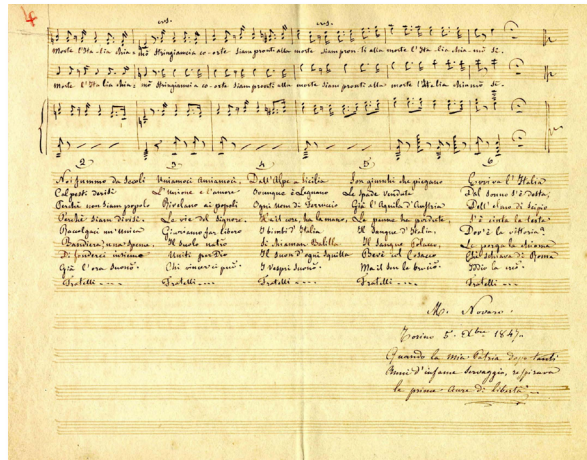 4
cres. cres.
morte l'Italia chiamò stringiamcia coorte siam pronti alla morte siam pronti alla morte l'Italia chiamò si.
morte l'Italia chiamò stringiamcia coorte siam pronti alla morte siam pronti alla morte l'Italia chiamò si.
2
Noi fummo da secoli
Calpesti derisi
Perchè non siam popolo
Perchè siam divisi.
Raccolgaci un'unica
Bandiera; una speme.
Di fonderci insieme
Già l'ora suonò.
Fratelli ----
3
Uniamoci amiamoci,
L'unione e l'amore
Rivelano ai popoli
Le vie del Signore.
Giuriamo far libero
Il suolo natio
Uniti per Dio
Chi vincer ci può.
Fratelli ----
4
Dall'Alpe a Sicilia
Dovunque è Legnano
Ogni uom di Ferruccio
Ha il core, ha la mano,
I bimbi d'Italia
Si chiaman Balilla
Il suon d'ogni squilla
I vespri suonò.
Fratelli ----
5
Son giunchi che piegano
Le spade vendute
Già l'Aquila d'Austria
Le penne ha perdute,
Il sangue d'Italia,
Il sangue Polacco,
Bevè col Cosacco
Ma il cor le bruciò.
Fratelli ----
6
Evviva l'Italia
Dal sonno s'è desta,
Dell'elmo di Scipio
S'è cinta la testa
Dov'è la vittoria?
Le porga la chioma
Chè schiava di Roma
Iddio la creò.
Fratelli ----
M. Novaro.
Torino 5. Xbre 1847.
Quando la mia Patria dopo tanti
Anni d'infame servaggio, respirava
le prime Aure di Libertà